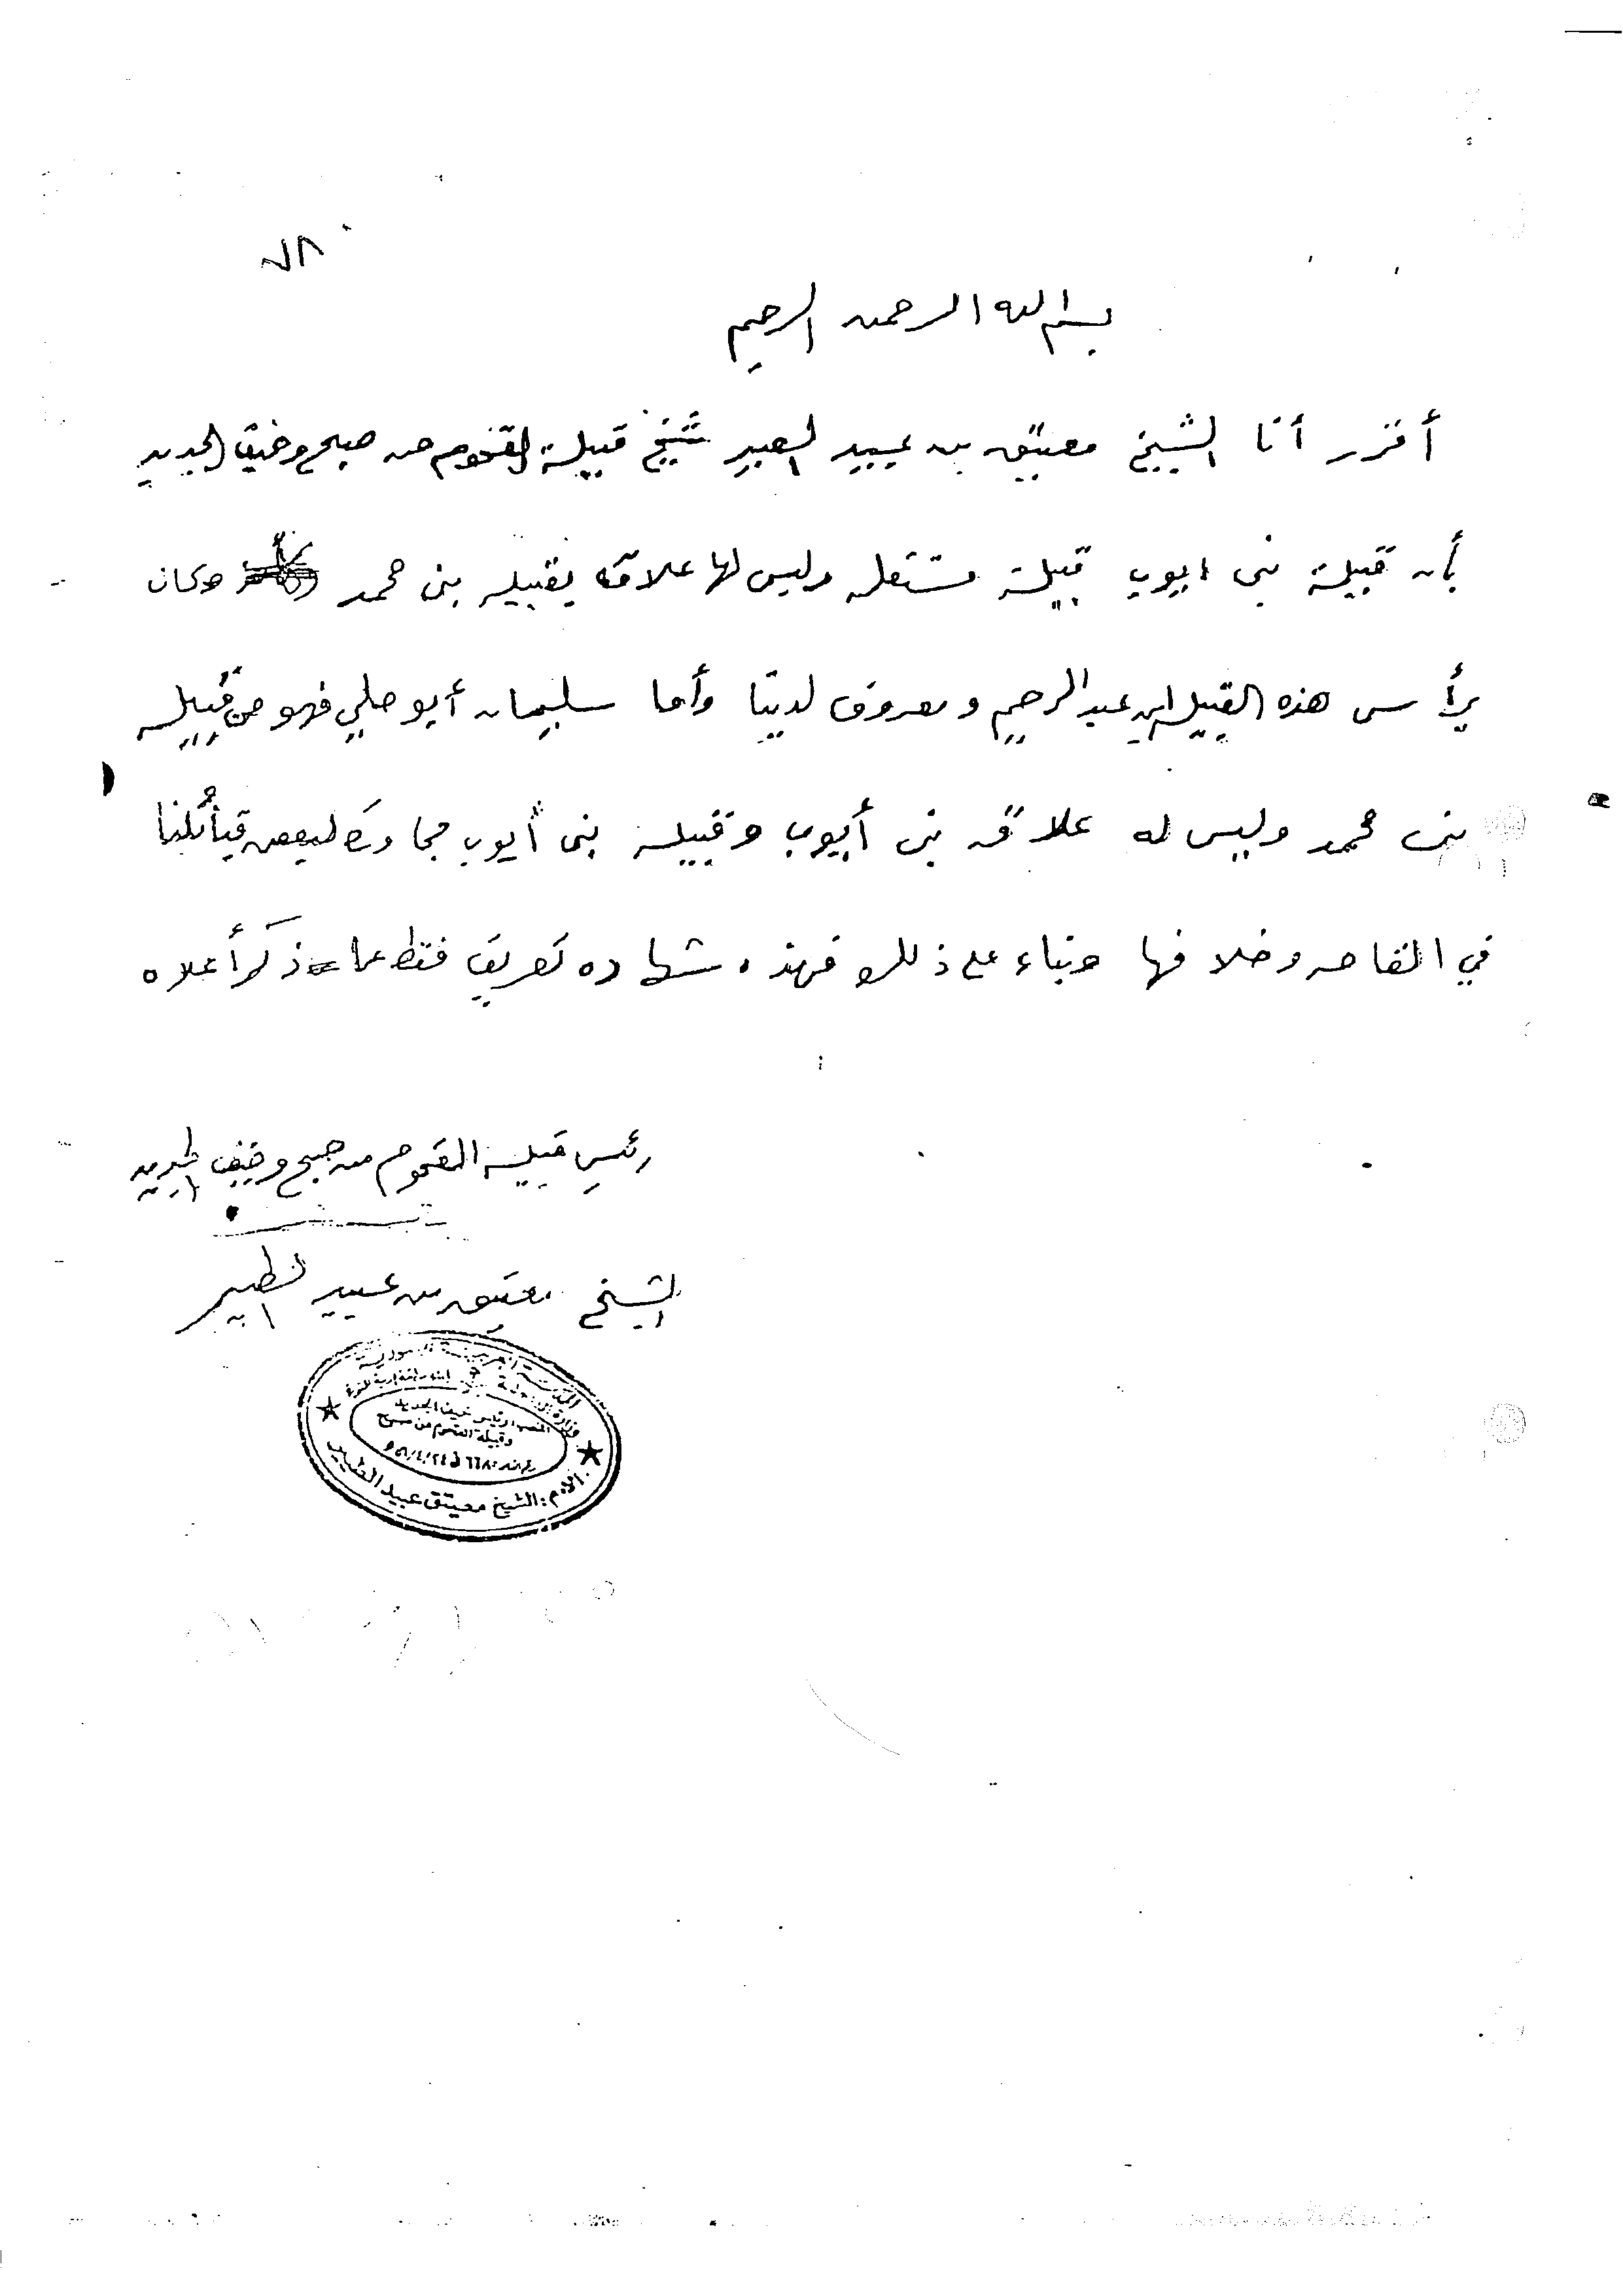 ٧٨
بسم الله الرحمن الرحيم
أقرر أنا الشيخ معيتق بن عبيد الصبير شيخ قبيلة القحوم من صبح وخيف الجديد
بأن قبيلة بني ايوب قبيلة مستقله وليس لها علاقه بقبيله بني محمد وكان
يرأس هذه القبيله ابن عبد الرحيم ومعروف لدينا وأما سليمان أبو صلبي فهو من قبيله
بني محمد وليس له علاقه بني أيوب وقبيله بني أيوب مجاوره لبعض قبائلنا
في القاحه وخلافها وبناء على ذلك فهذه شهاده تعريف فقط عما ذكر أعلاه
رئيس قبيلة القحوم من صبح وخيف الجديد
الشيخ معيتق بن عبيد الطبير
المملكة العربية السعودية
وزارة الداخلية
المنصب: رئيس خيف الجديد
وقبيلة القحوم من صبح
الاسم: الشيخ معيتق عبيد الطبير